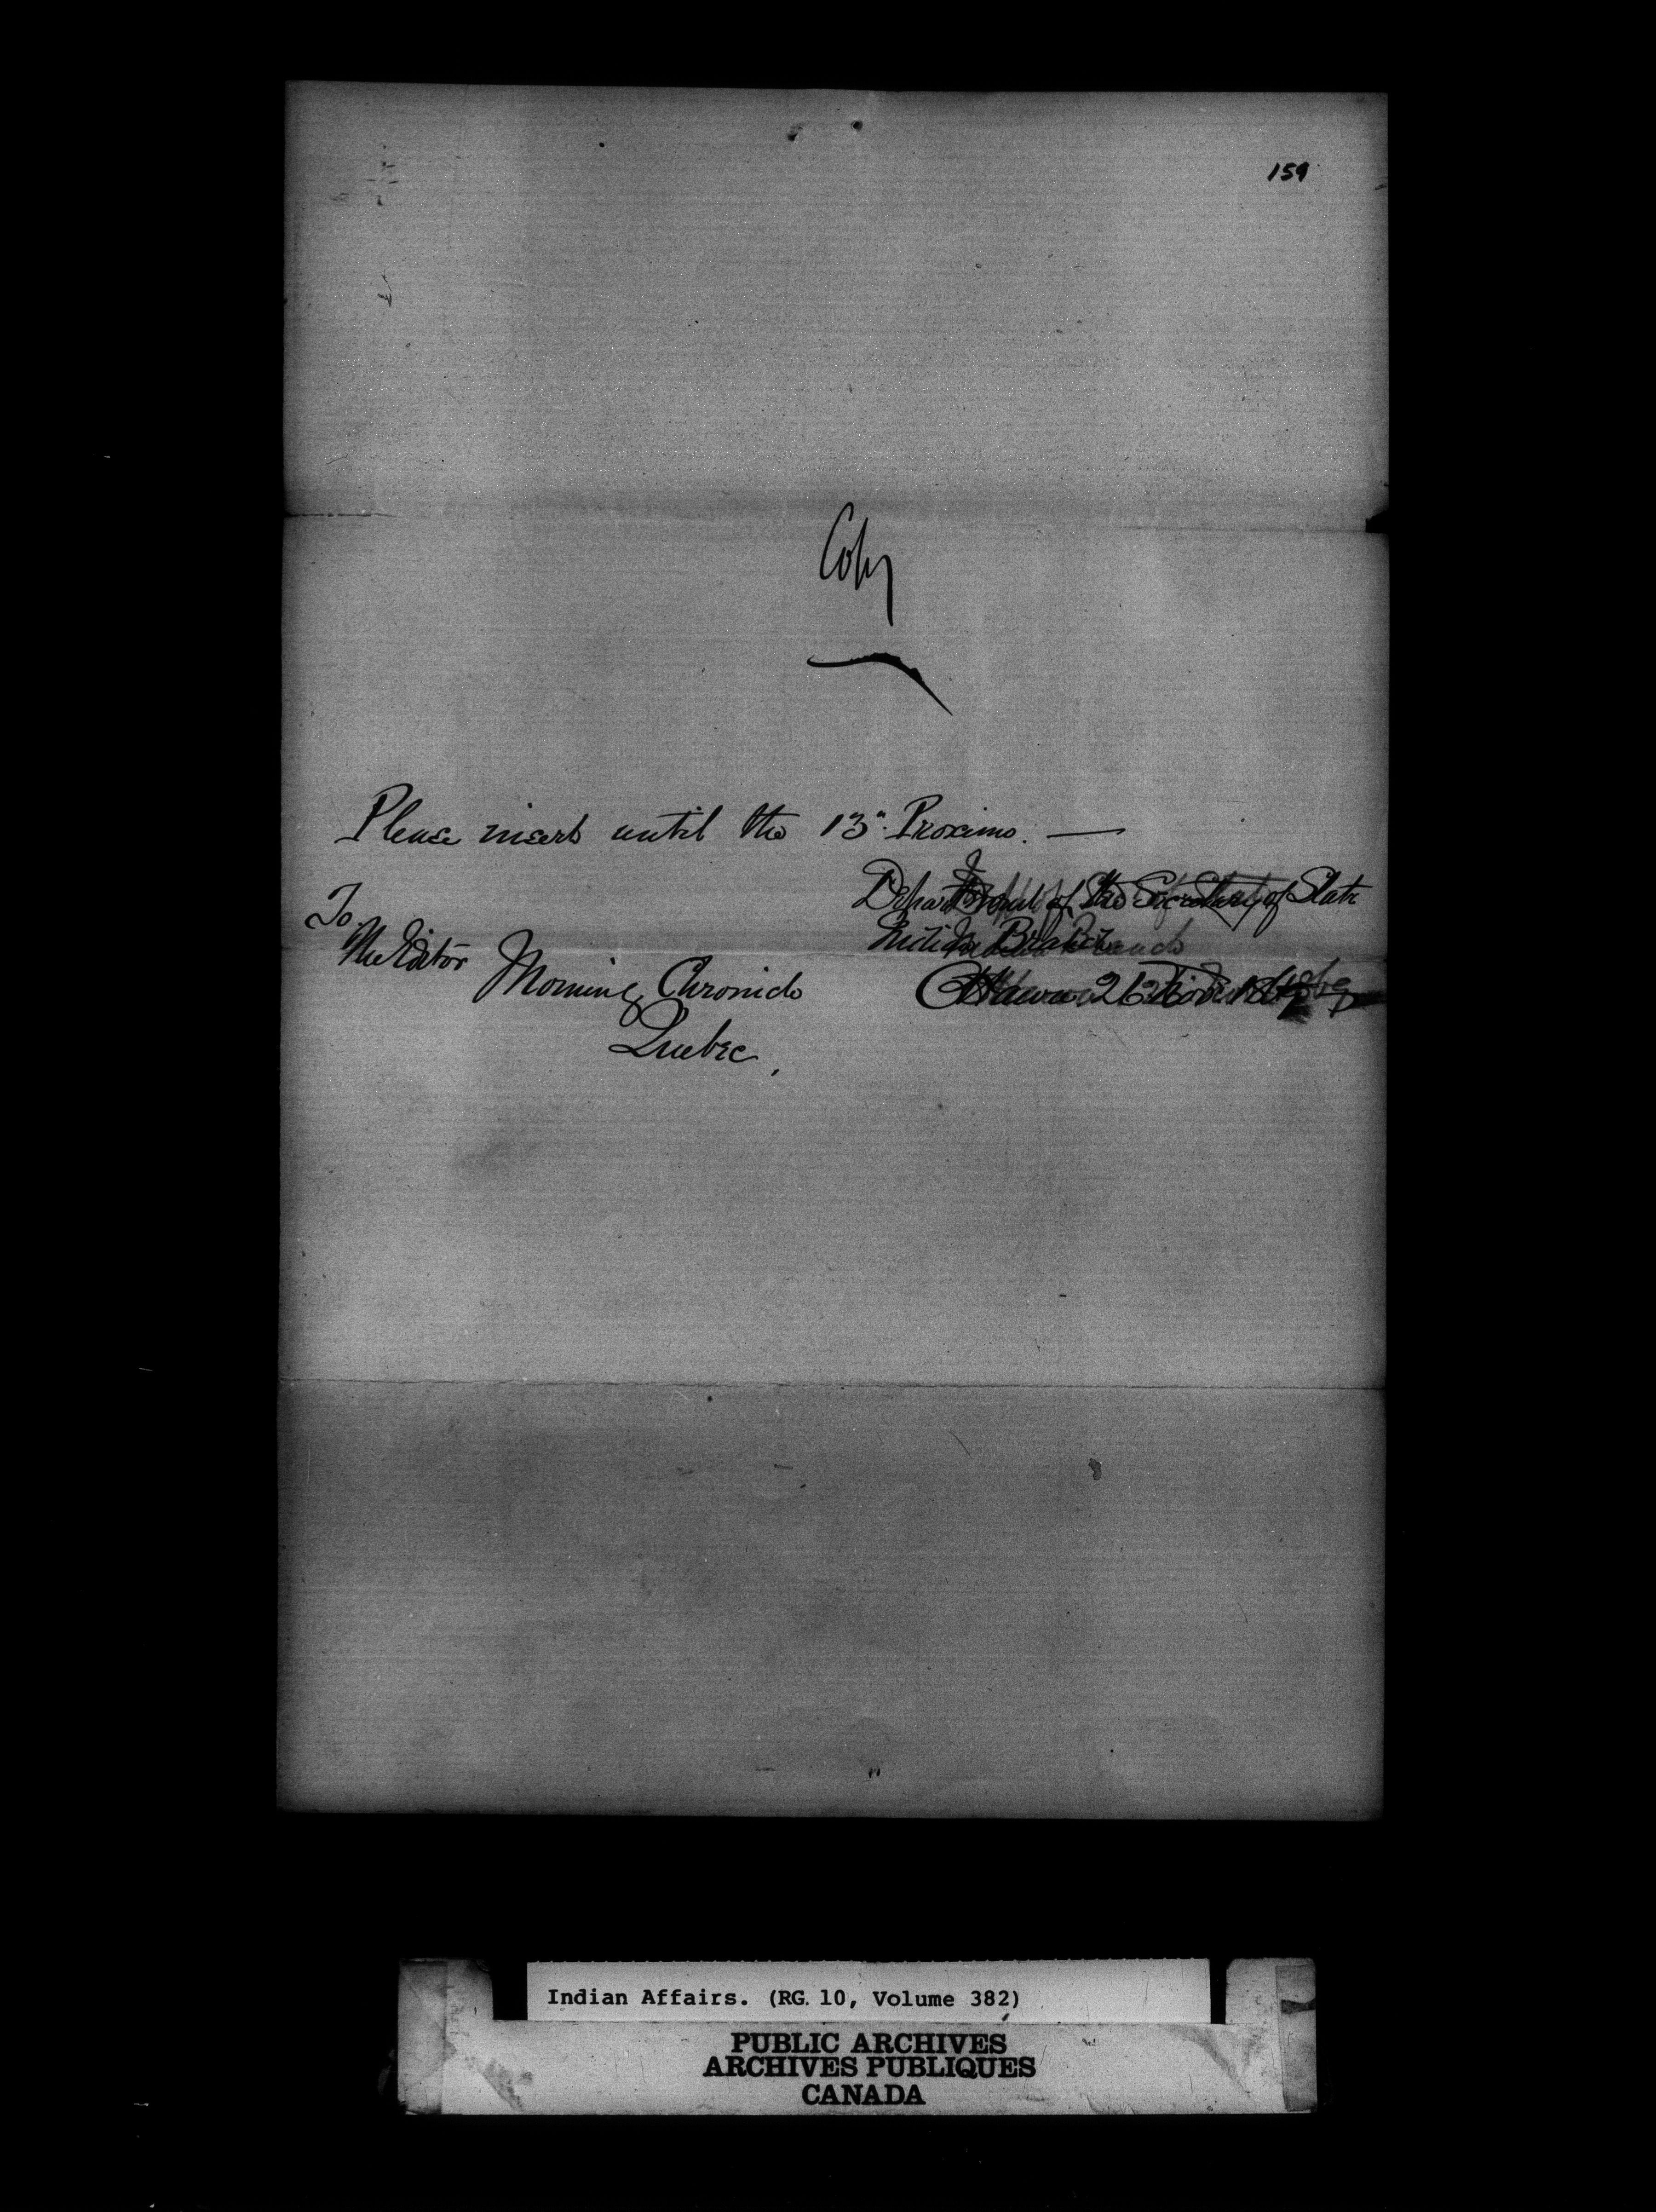 159
Copy
Please insert until the 13" Proximo. —
Department of the Secretary of State
Indian Branch
To
The Editor
Morning Chronicle
Ottawa 26
Quebec,
Indian Affairs. (RG. 10, Volume 382)
PUBLIC ARCHIVES
ARCHIVES PUBLIQUES
CANADA